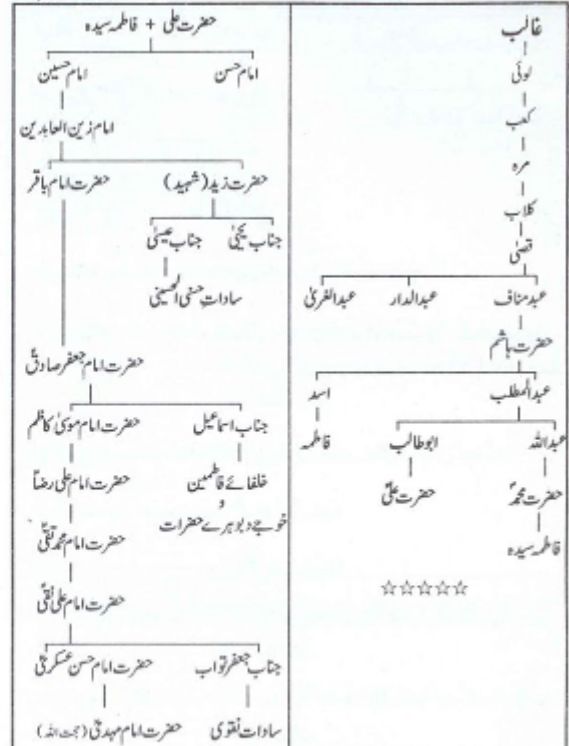 غالب
لوئی
کعب
مرہ
کلاب
قصیٰ
عبد مناف عبدالدار عبدالغریٰ
حضرت ہاشم
عبدالمطلب اسد
عبداللہ ابوطالب فاطمہ
حضرت محمدؐ حضرت علیؑ
فاطمہ سیدہ
☆☆☆☆☆
حضرت علی + فاطمہ سیدہ
امام حسن امام حسین
امام زین العابدین
حضرت زید (شہید) حضرت امام باقر
جناب یحیٰی جناب عیسیٰ
سادات حسنی الحسینی
حضرت امام جعفر صادقؑ
جناب اسماعیل حضرت امام موسیٰ کاظم
خلفائے فاطمین حضرت امام علی رضاؑ
و
خوجے و بوہرے حضرات
حضرت امام محمد تقیؑ
حضرت امام علی نقیؑ
جناب جعفر تواب حضرت امام حسن عسکریؑ
سادات نقوی حضرت امام مہدیؑ (حجت اللہ)